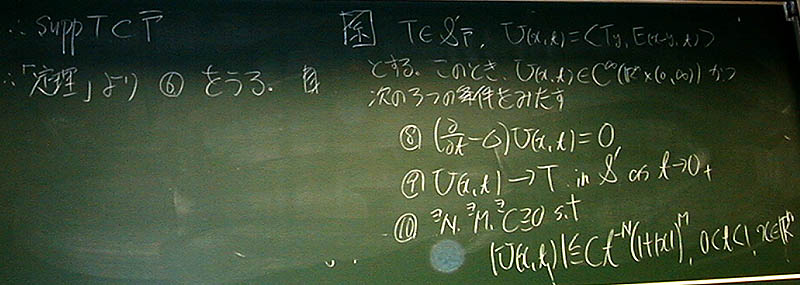 ∴ supp T ⊂ Γ̄
∴「定理」より ⑥ をうる.
系 T∈S'Γ̄, U(x,t)=<Ty, E(x-y,t)>
とする. このとき, U(x,t)∈C^∞(ℝⁿ×(0,∞)) かつ
次の3つの条件をみたす
⑧ (∂/∂t-△)U(x,t)=0
⑨ U(x,t)→T in S' as t→0+
⑩ ∃N, ∃M, ∃C≧0 s.t
|U(x,t)|≦Ct^-N(1+|x|)^M, 0<t<1, x∈ℝⁿ